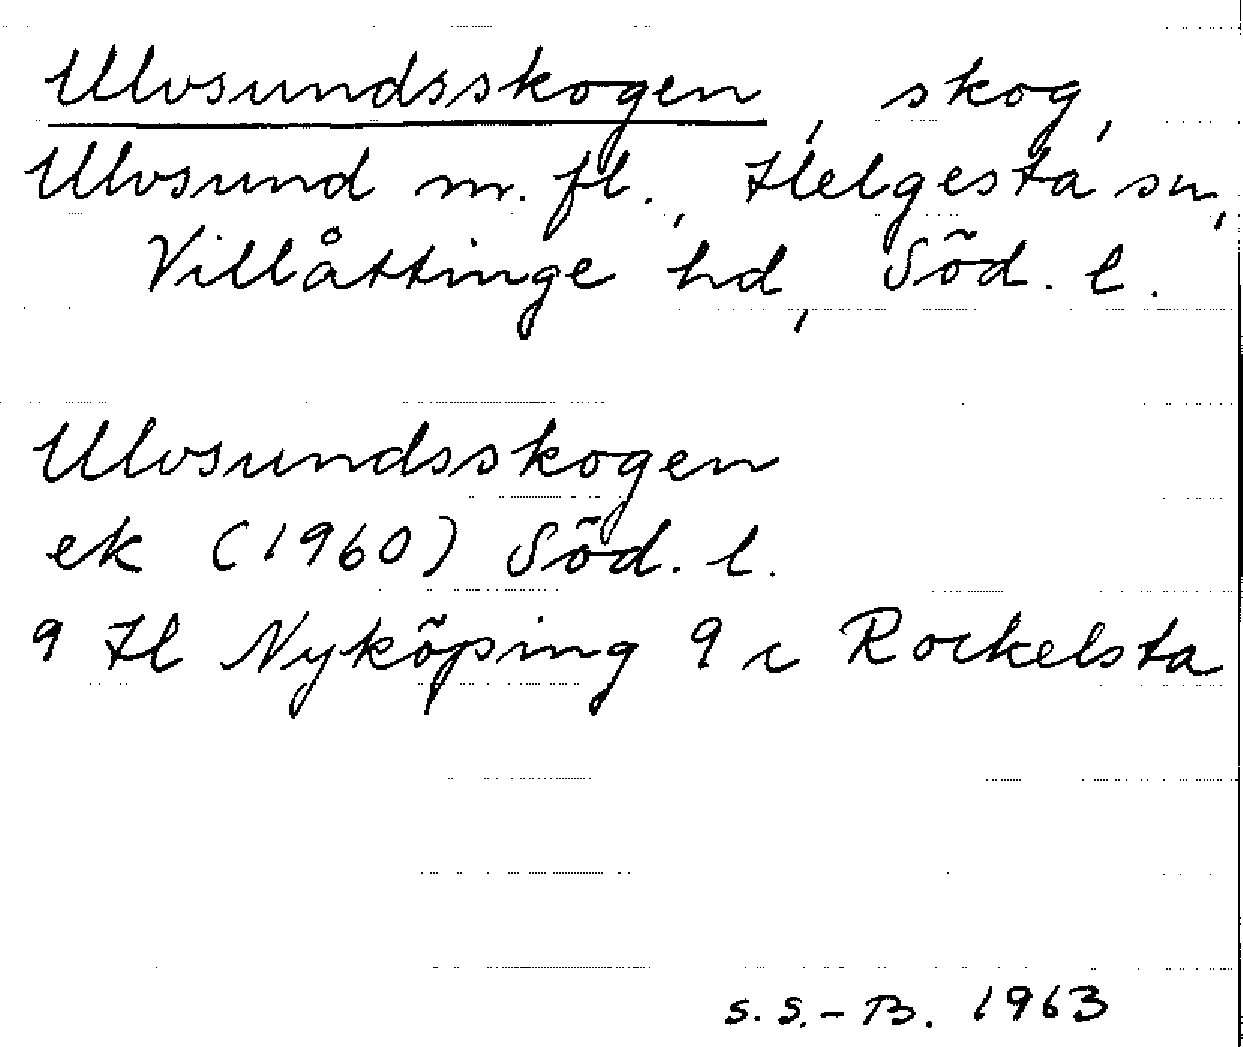 Ulvsundsskogen, skog,
Ulvsund m. fl., Helgesta sn,
Villåttinge hd, Söd. l.
Ulvsundsskogen
ek (1960) Söd. l.
9 H Nyköping 9 c Rockelsta
S. S.-B. 1963